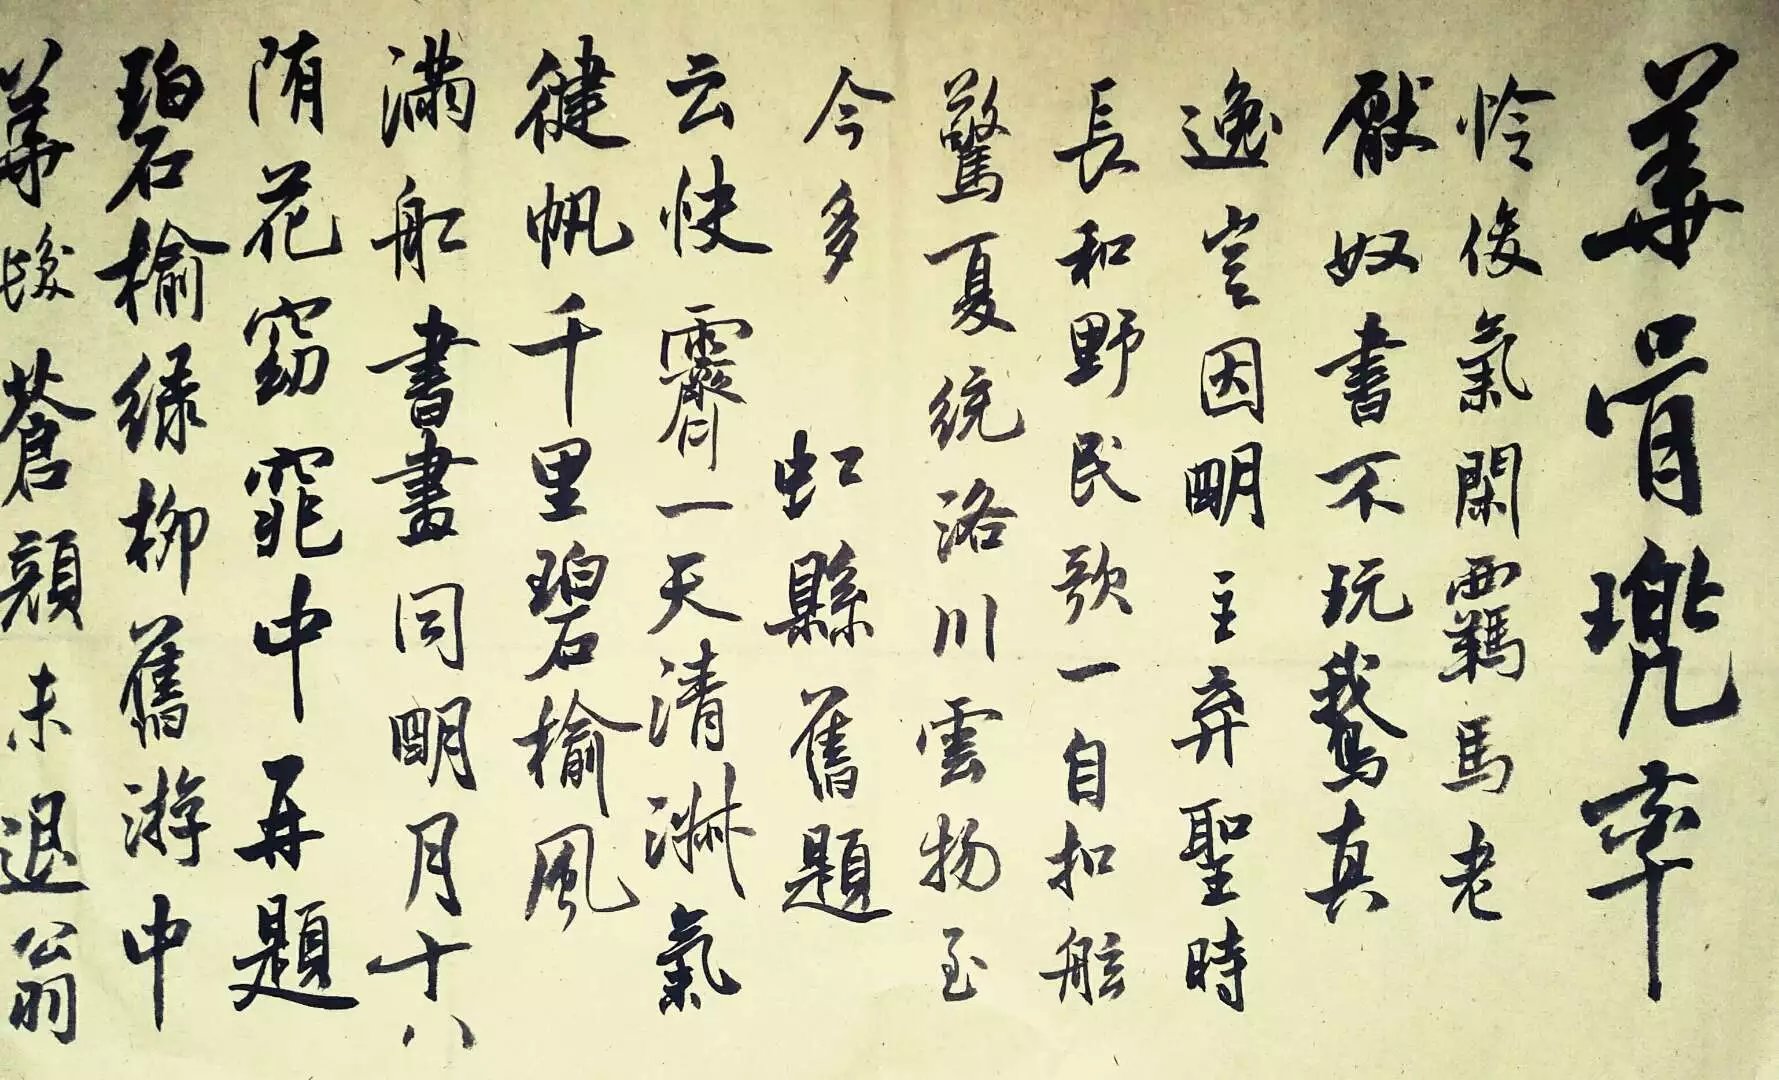 華胥兜率
怜俊氣閑羈馬老
厭奴書不玩鵝真
逸豈因明主弃聖時
長和野民歌一自扣舷
驚夏統洛川雲物至
今多 虹縣舊題
云快霽一天清淑氣
健帆千里碧榆風
滿舡書畫同明月十八
隋花窈窕中再題
碧榆綠柳舊游中
華髮蒼顏未退翁